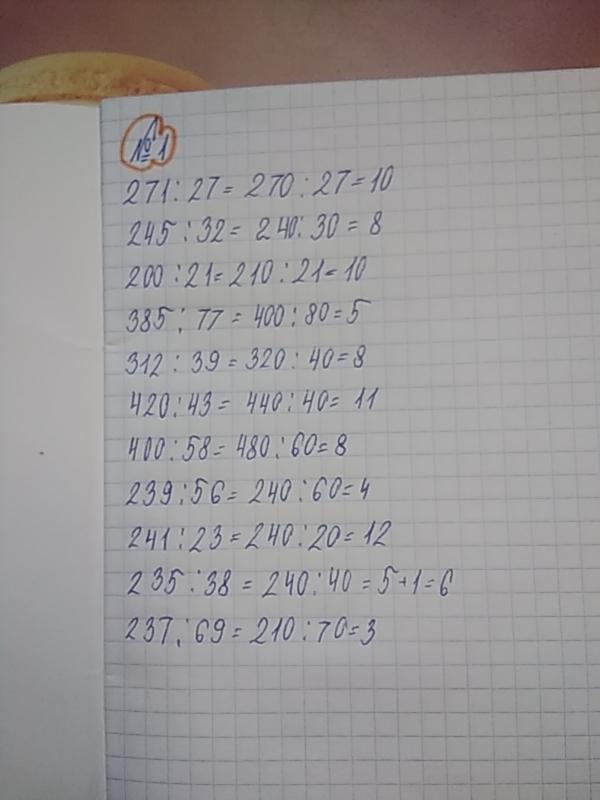 №1
271:27=270:27=10
245:32=240:30=8
200:21=210:21=10
385:77=400:80=5
312:39=320:40=8
420:43=440:40=11
400:58=480:60=8
239:56=240:60=4
241:23=240:20=12
235:38=240:40=5+1=6
237:69=210:70=3